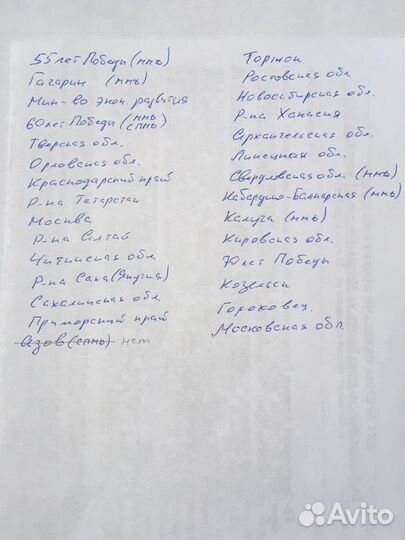 55 лет Победы (ммь)
Гагарин (ммь)
Мин-во экон. развития
60 лет Победы (ммь спмь)
Тверская обл.
Орловская обл.
Краснодарский край
Р-ка Татарстан
Москва
Р-ка Алтай
Читинская обл
Р-ка Саха (Якутия)
Сахалинская обл
Приморский край
Азов (спмь) нет
Торжок
Ростовская обл
Новосибирская обл.
Р-ка Хакасия
Архангельская обл
Липецкая обл.
Свердловская обл. (ммь)
Кабардино-Балкарская (ммь)
Калуга (ммь)
Кировская обл.
70 лет Победы
Козельск
Гороховец.
Московская обл.
Avito